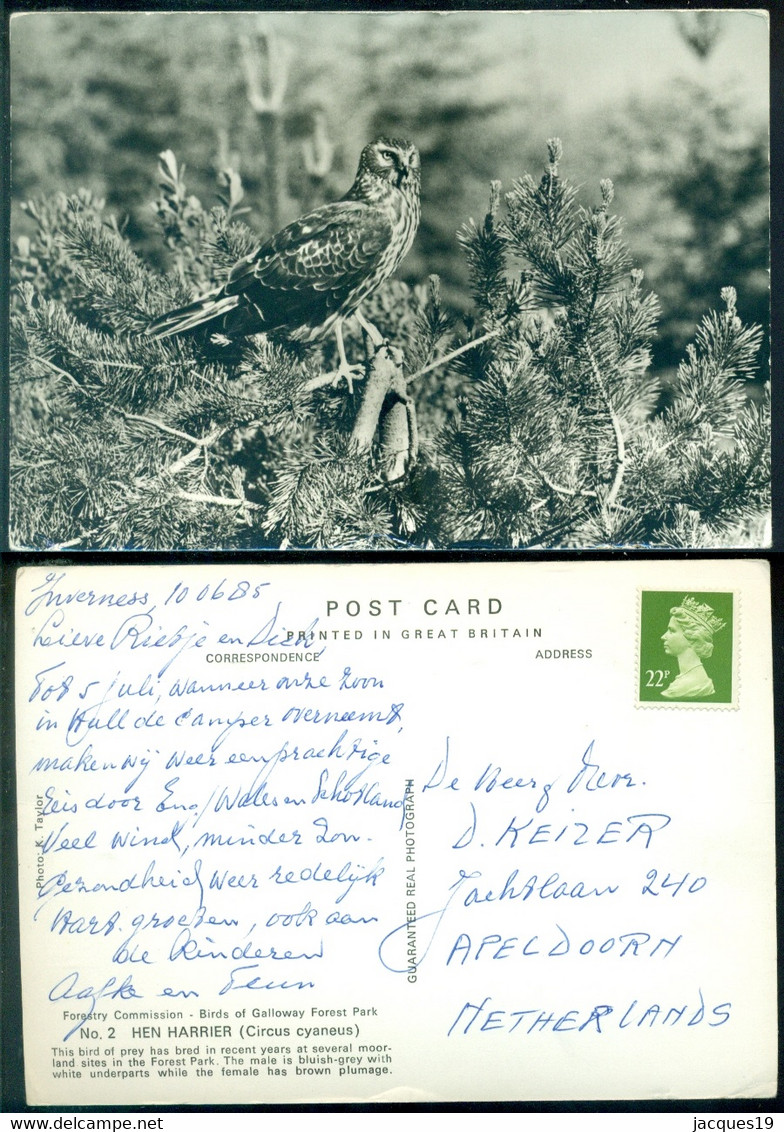 Inverness, 10 06 85
POST CARD
Lieve Rietje en Dick,
PRINTED IN GREAT BRITAIN
CORRESPONDENCE
ADDRESS
22P
Tot 5 juli, wanneer onze zoon
in Hull de camper overneemt,
maken wij weer een prachtige
reis door Eng/Wales en Schotland
Veel wind, minder zon.
Gezondheid weer redelijk
Hart. groeten, ook aan
de kinderen
Aafke en Teun
Photo: K. Taylor
GUARANTEED REAL PHOTOGRAPH
De Heer & Mevr.
D. KEIZER
Jachtlaan 240
APELDOORN
NETHERLANDS
Forestry Commission - Birds of Galloway Forest Park
No. 2 HEN HARRIER (Circus cyaneus)
This bird of prey has bred in recent years at several moor-
land sites in the Forest Park. The male is bluish-grey with
white underparts while the female has brown plumage.
jacques19